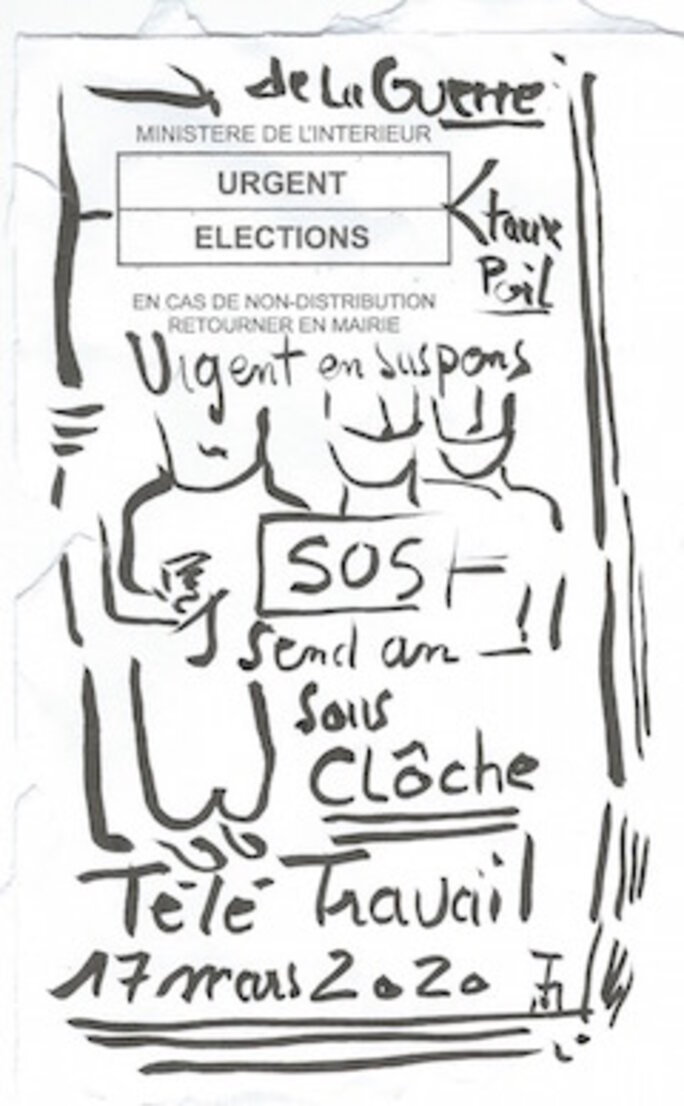 de La Guerre
MINISTERE DE L'INTERIEUR
URGENT
ELECTIONS
EN CAS DE NON-DISTRIBUTION
RETOURNER EN MAIRIE
taux
Poil
Urgent en suspens
SOS
Send an
Sous
CLôche
Télé Travail
17 mars 2020